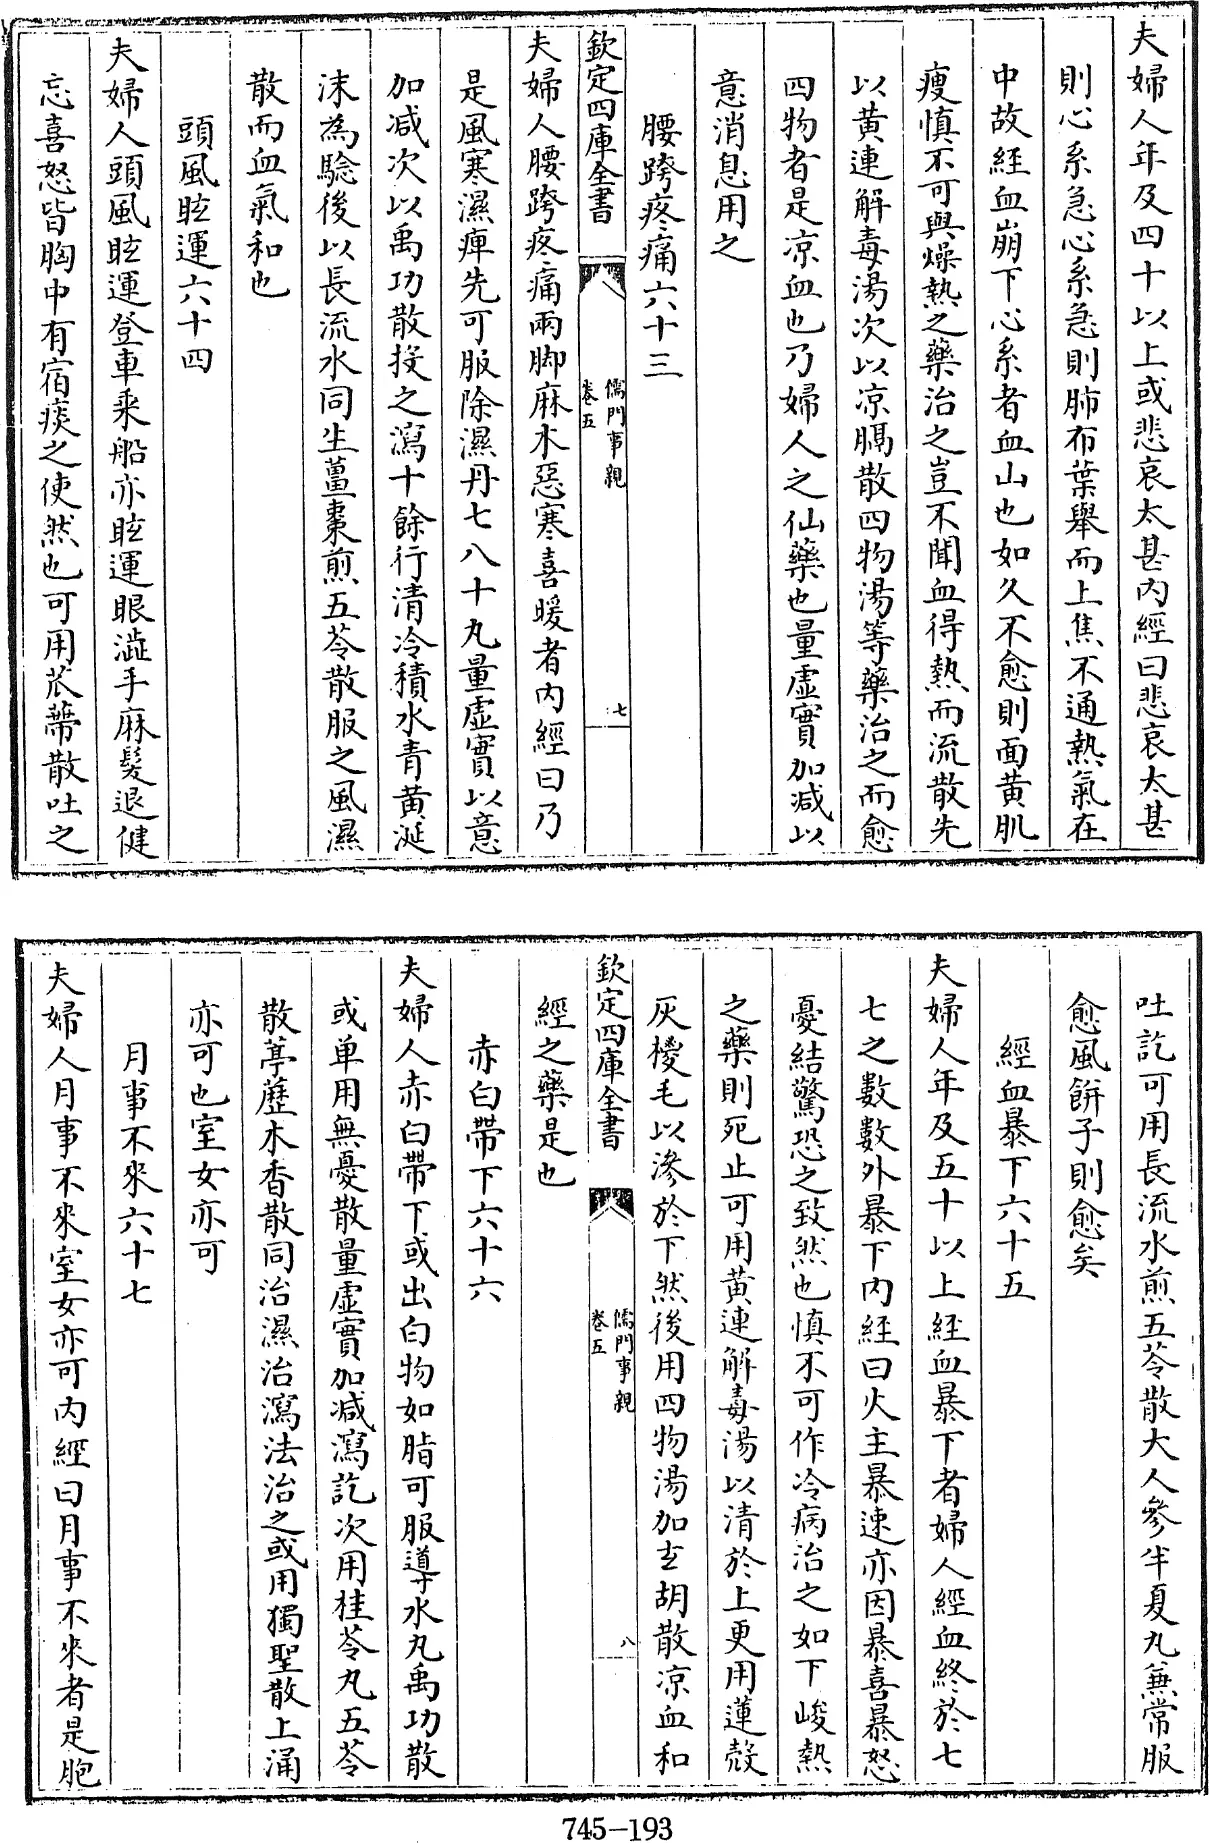 夫婦人年及四十以上或悲哀太甚内經曰悲哀太甚
則心系急心系急則肺布葉舉而上焦不通熱氣在
中故經血崩下心系者血山也如久不愈則面黄肌
瘦慎不可與燥熱之藥治之豈不聞血得熱而流散先
以黄連解毒湯次以凉膈散四物湯等藥治之而愈
四物者是凉血也乃婦人之仙藥也量虛實加减以
意消息用之
腰跨疼痛六十三
欽定四庫全書
儒門事親
卷五
七
夫婦人腰跨疼痛兩脚麻木惡寒喜暖者内經曰乃
是風寒濕痺先可服除濕丹七八十丸量虛實以意
加减次以禹功散投之瀉十餘行清冷積水青黄涎
沫為驗後以長流水同生薑棗煎五苓散服之風濕
散而血氣和也
頭風眩運六十四
夫婦人頭風眩運登車乘船亦眩運眼澁手麻髮退健
忘喜怒皆胸中有宿痰之使然也可用瓜蒂散吐之
吐訖可用長流水煎五苓散大人參半夏丸兼常服
愈風餅子則愈矣
經血暴下六十五
夫婦人年及五十以上經血暴下者婦人經血終於七
七之數數外暴下内經曰火主暴速亦因暴喜暴怒
憂結驚恐之致然也慎不可作冷病治之如下峻熱
之藥則死止可用黄連解毒湯以清於上更用蓮殻
灰椶毛以滲於下然後用四物湯加玄胡散凉血和
欽定四庫全書
儒門事親
卷五
八
經之藥是也
赤白帶下六十六
夫婦人赤白帶下或出白物如脂可服導水丸禹功散
或单用無憂散量虛實加减瀉訖次用桂苓丸五苓
散葶藶木香散同治濕治瀉法治之或用獨聖散上涌
亦可也室女亦可
月事不來六十七
夫婦人月事不來室女亦可内經曰月事不來者是胞
745-193